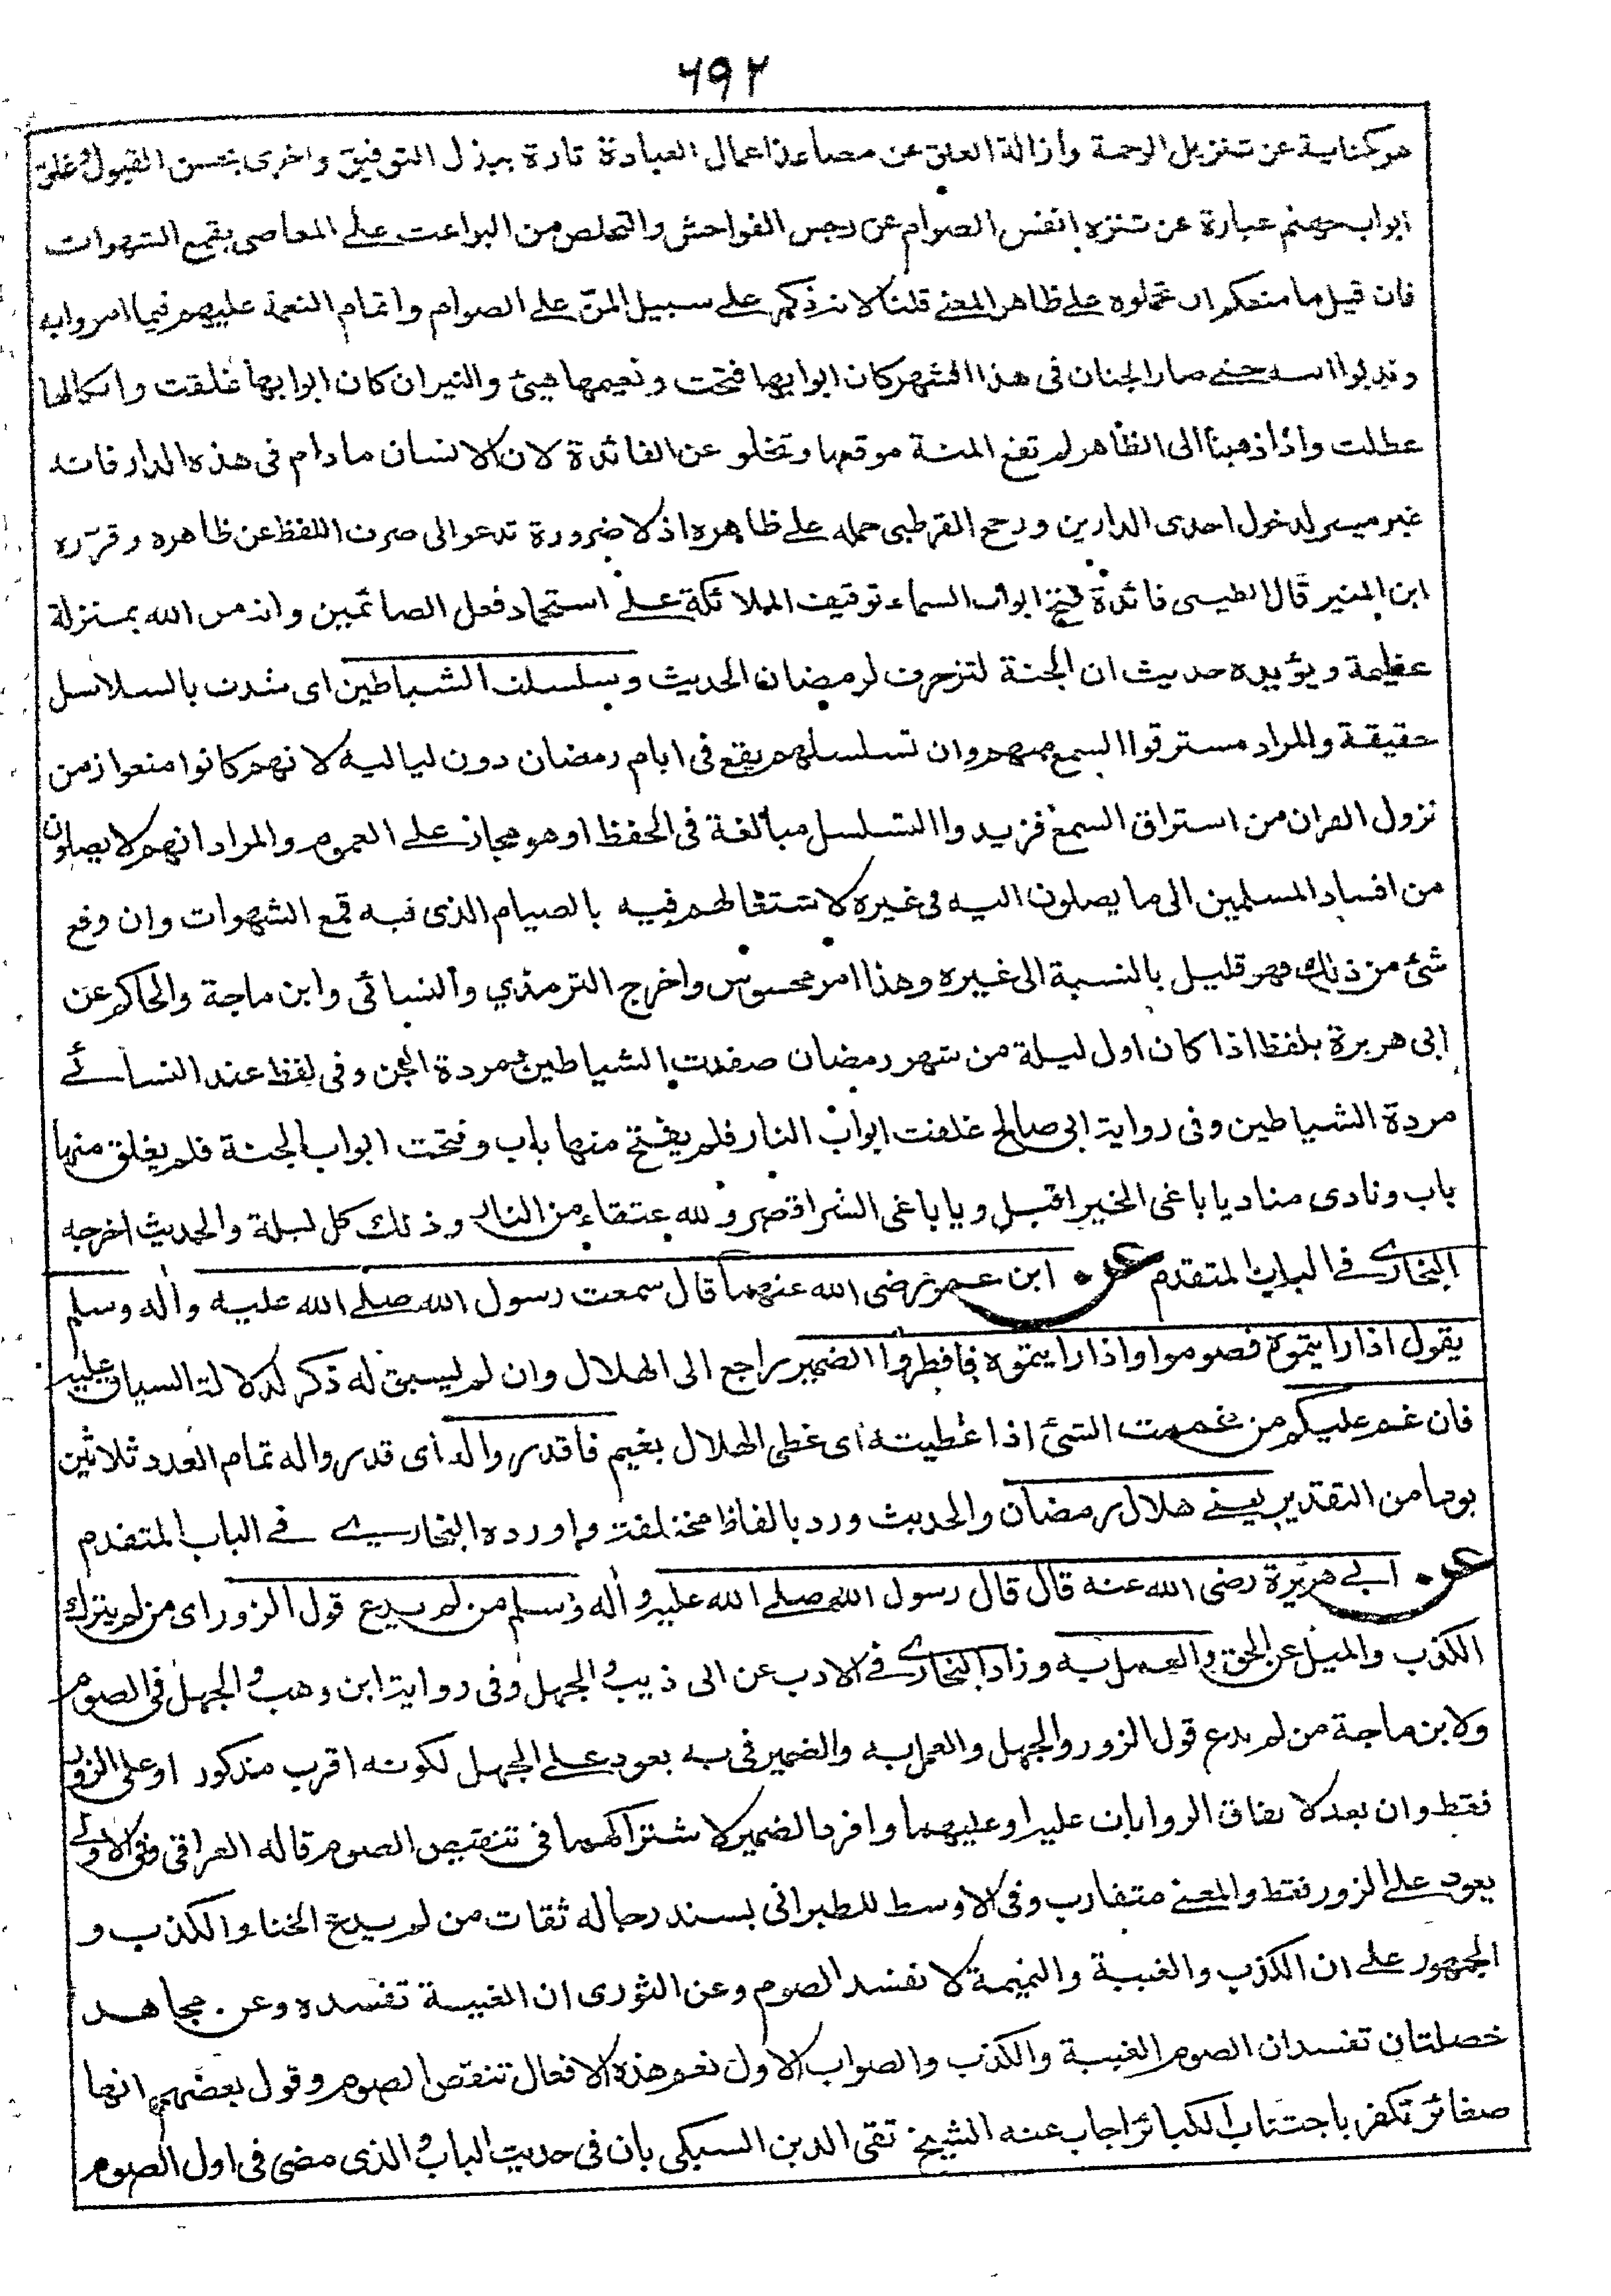 ٦٩٢
هو كناية عن تنزيل الرحمة وازالة الغلق عن مصاعد اعمال العبادة تارة ببذل التوفيق واخرى بحسن القبول وغلق
ابواب جهنم عبارة عن تنزه انفس الصوام عن رجس الفواحش والتخلص من البواعث على المعاصى بقمع الشهوات
فان قيل ما منعكم ان تحملوه على ظاهر المعنى قلنا لانه ذكر على سبيل المنّ على الصوام واتمام النعمة عليهم فيما امروا به
وندبوا اليه حتى صار الجنان فى هذا الشهر كان ابوابها فتحت ونعيمها هيئ والنيران كان ابوابها غلقت وانكالها
عطلت واذا ذهبنا الى الظاهر لم تقع المنة موقعها وتخلو عن الفائدة لان الانسان ما دام فى هذه الدار فانه
غير ميسر لدخول احدى الدارين ورجح القرطبى حمله على ظاهره اذ لا ضرورة تدعو الى صرف اللفظ عن ظاهره وقرّره
ابن المنير قال الطيبى فائدة فتح ابواب السماء توقيف الملائكة على استحماد فعل الصائمين وانه من الله بمنزلة
عظيمة ويؤيده حديث ان الجنة لتزخرف لرمضان الحديث وسلسلت الشياطين اى شدت بالسلاسل
حقيقة والمراد مسترقوا السمع منهم وان تسلسلهم يقع فى ايام رمضان دون لياليه لانهم كانوا منعوا زمن
نزول القران من استراق السمع فزيدوا التسلسل مبالغة فى الحفظ او هو مجاز على العموم والمراد انهم لا يصلون
من افساد المسلمين الى ما يصلون اليه فى غيره لاشتغالهم فيه بالصيام الذى فيه قمع الشهوات وان وقع
شئ من ذلك فهو قليل بالنسبة الى غيره وهذا امر محسوس واخرج الترمذي والنسائى وابن ماجة والحاكم عن
ابى هريرة بلفظ اذا كان اول ليلة من شهر رمضان صفدت الشياطين مردة الجن وفى لفظ عند النسائے
مردة الشياطين وفى رواية ابى صالح غلقت ابواب النار فلم يفتح منها باب وفتحت ابواب الجنة فلم يغلق منها
باب ونادى مناد يا باغى الخير اقبل ويا باغى الشر اقصر ولله عتقاء من النار وذلك كل ليلة والحديث اخرجه
البخارى فے الباب المتقدم عن ابن عمر رضى الله عنهما قال سمعت رسول الله صلے الله عليه واله وسلم
يقول اذا رايتموه فصوموا واذا رايتموه فافطروا الضمير راجع الى الهلال وان لم يسبق له ذكر لدلالة السياق عليه
فان غم عليكم من غممت الشئ اذا غطيته اى غطى الهلال بغيم فاقدروا له اى قدروا له تمام العدد ثلاثين
يوما من التقدير يعنے هلال رمضان والحديث ورد بالفاظ مختلفة واورده البخارے فے الباب المتقدم
عن ابى هريرة رضى الله عنه قال قال رسول الله صلے الله عليه واله وسلم من لم يدع قول الزور اى من لم يترك
الكذب والميل عن الحق والعمل به وزاد البخارى فے الادب عن ابى ذيب والجهل وفى رواية ابن وهب والجهل فى الصوم
ولابن ماجة من لم يدع قول الزور والجهل والعمل به والضمير فى به يعود على الجهل لكونه اقرب مذكور او على الزور
فقط وان بعد لاتفاق الروايات عليه او عليهما وافرد الضمير لاشتراكهما فى تنقيص الصوم قاله العراقى وفى الاولے
يعود على الزور فقط والمعنے متقارب وفى الاوسط للطبرانى بسند رجاله ثقات من لم يدع الخنا والكذب و
الجمهور على ان الكذب والغيبة والنميمة لا تفسد الصوم وعن الثورى ان الغيبة تفسده وعن مجاهد
خصلتان تفسدان الصوم الغيبة والكذب والصواب الاول نعم هذه الافعال تنقص الصوم وقول بعضهم انها
صغائر تكفر باجتناب الكبائر اجاب عنه الشيخ تقى الدين السبكى بان فى حديث الباب والذى مضى فى اول الصوم